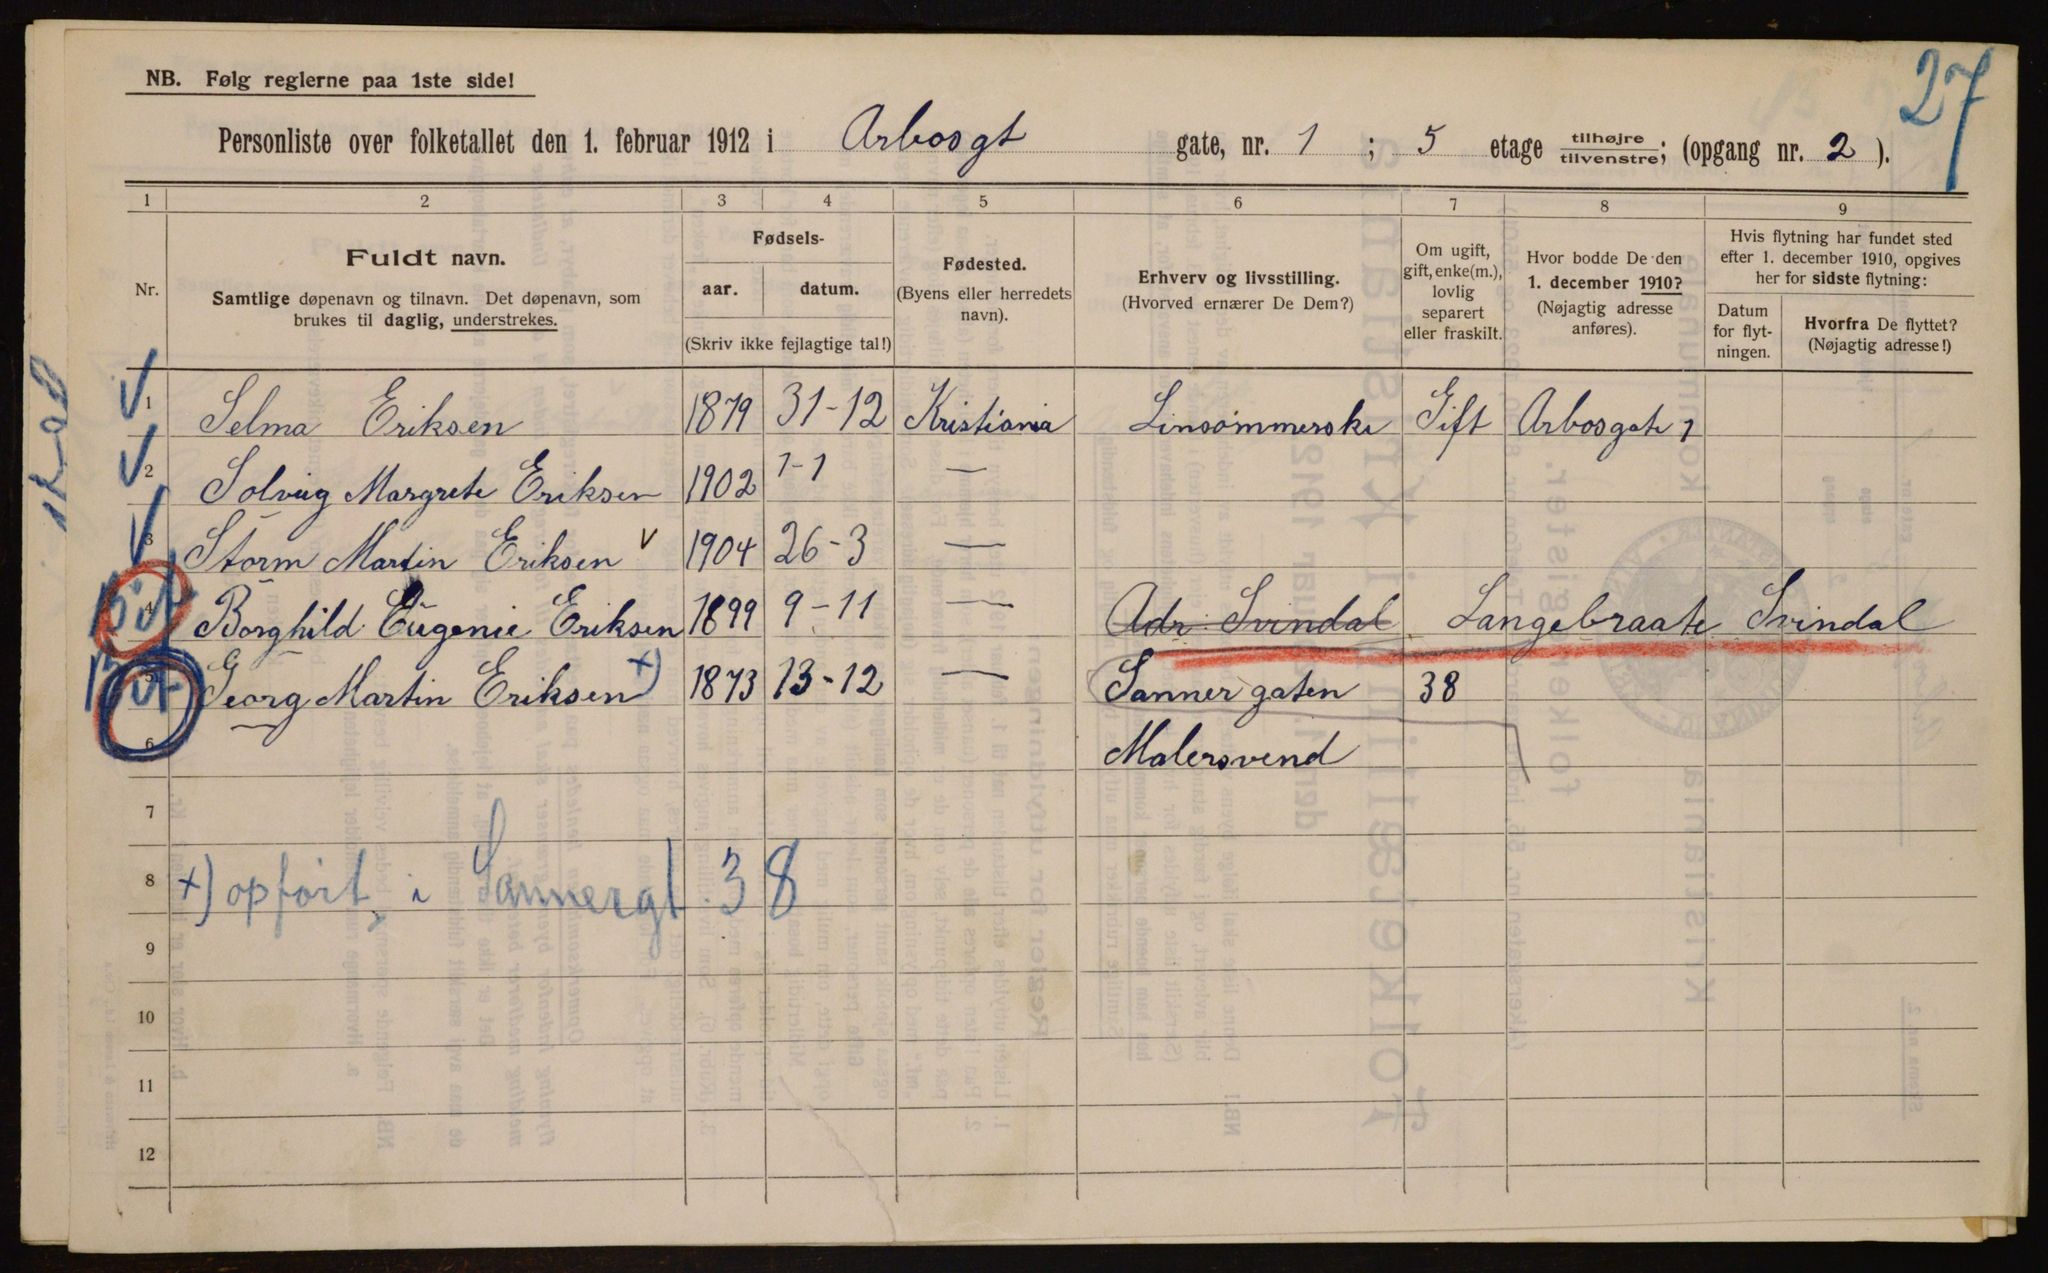 27
NB. Følg reglerne paa 1ste side!
Personliste over folketallet den 1. februar 1912 i Arbosgt gate, nr. 1 ; 5 etage tilhøjre/tilvenstre; (opgang nr. 2 ).
1 2 3 4 5 6 7 8 9
Nr.
Fuldt navn.
Samtlige døpenavn og tilnavn. Det døpenavn, som
brukes til daglig, understrekes.
Fødsels-
aar. datum.
(Skriv ikke fejlagtige tal!)
Fødested.
(Byens eller herredets
navn).
Erhverv og livsstilling.
(Hvorved ernærer De Dem?)
Om ugift,
gift, enke(m.),
lovlig
separert
eller fraskilt.
Hvor bodde De den
1. december 1910?
(Nøjagtig adresse
anføres).
Hvis flytning har fundet sted
efter 1. december 1910, opgives
her for sidste flytning:
Datum
for flyt-
ningen.
Hvorfra De flyttet?
(Nøjagtig adresse!)
1 Selma Eriksen 1879 31-12 Kristiania Linsømmerske Gift Arbosgate 1
2 Solveig Margrete Eriksen 1902 1-1 —
3 Storm Martin Eriksen v 1904 26-3 —
4 Borghild Eugenie Eriksen 1899 9-11 — Adr Svindal Langebraate Svindal
5 Georg Martin Eriksen x) 1873 13-12 — Sannergaten 38
6 Malersvend
7
8 x) opført i Sannergt. 38
9
10
11
12